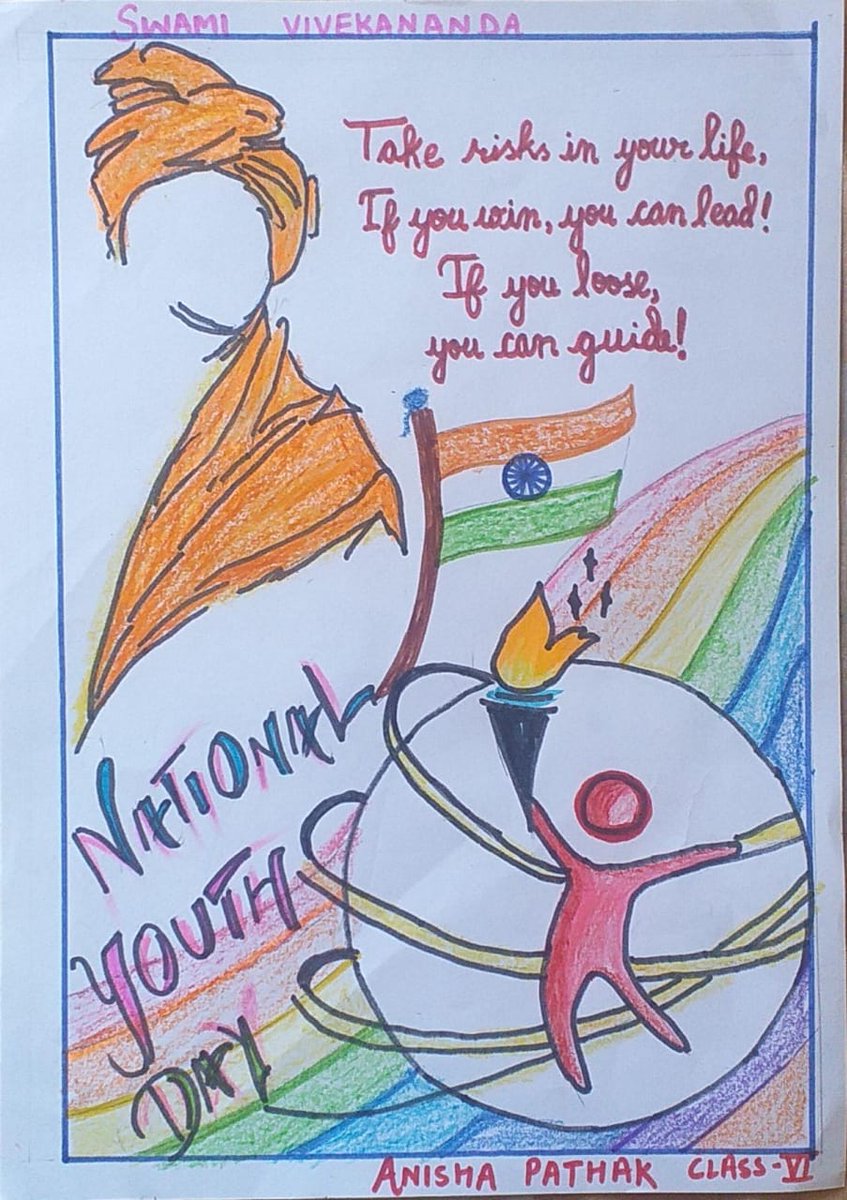 SWAMI VIVEKANANDA
Take risks in your life,
If you win, you can lead!
If you loose,
you can guide!
NATIONAL
YOUTH
DAY
ANISHA PATHAK CLASS-VI